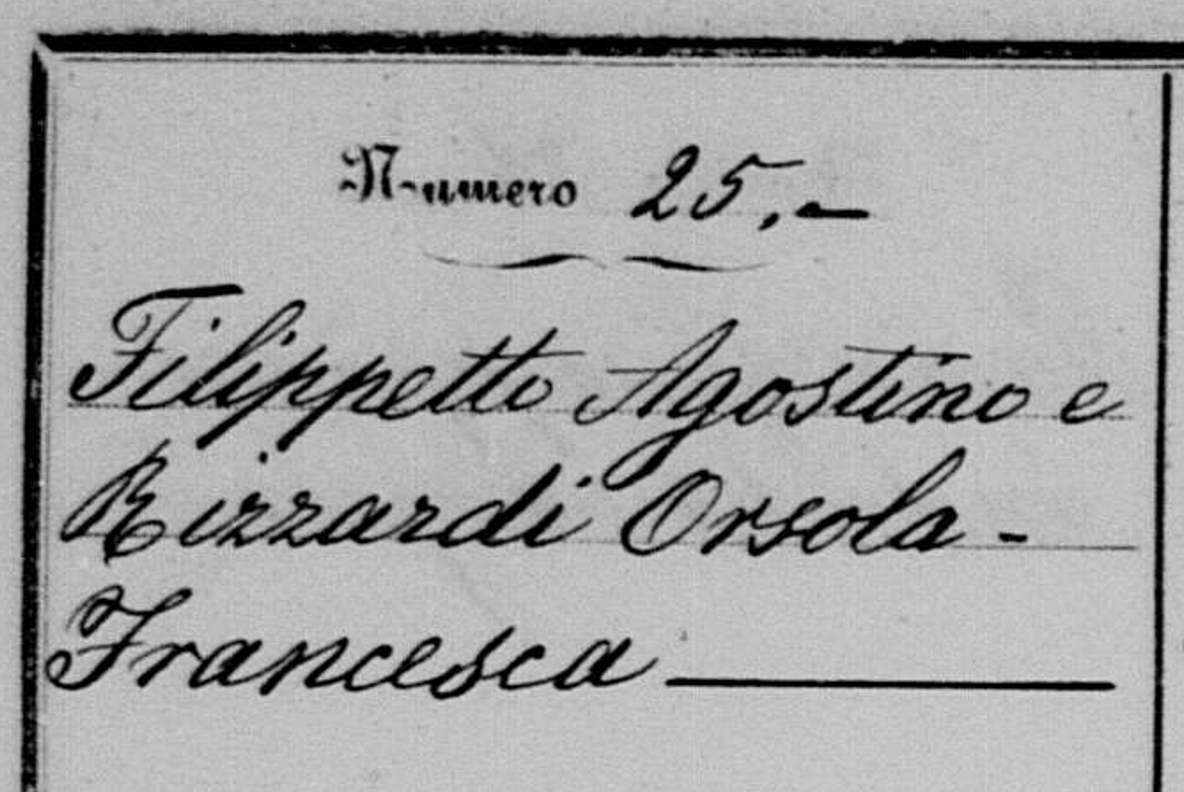 Numero 25.-
Filippetto Agostino e
Rizzardi Orsola -
Francesca